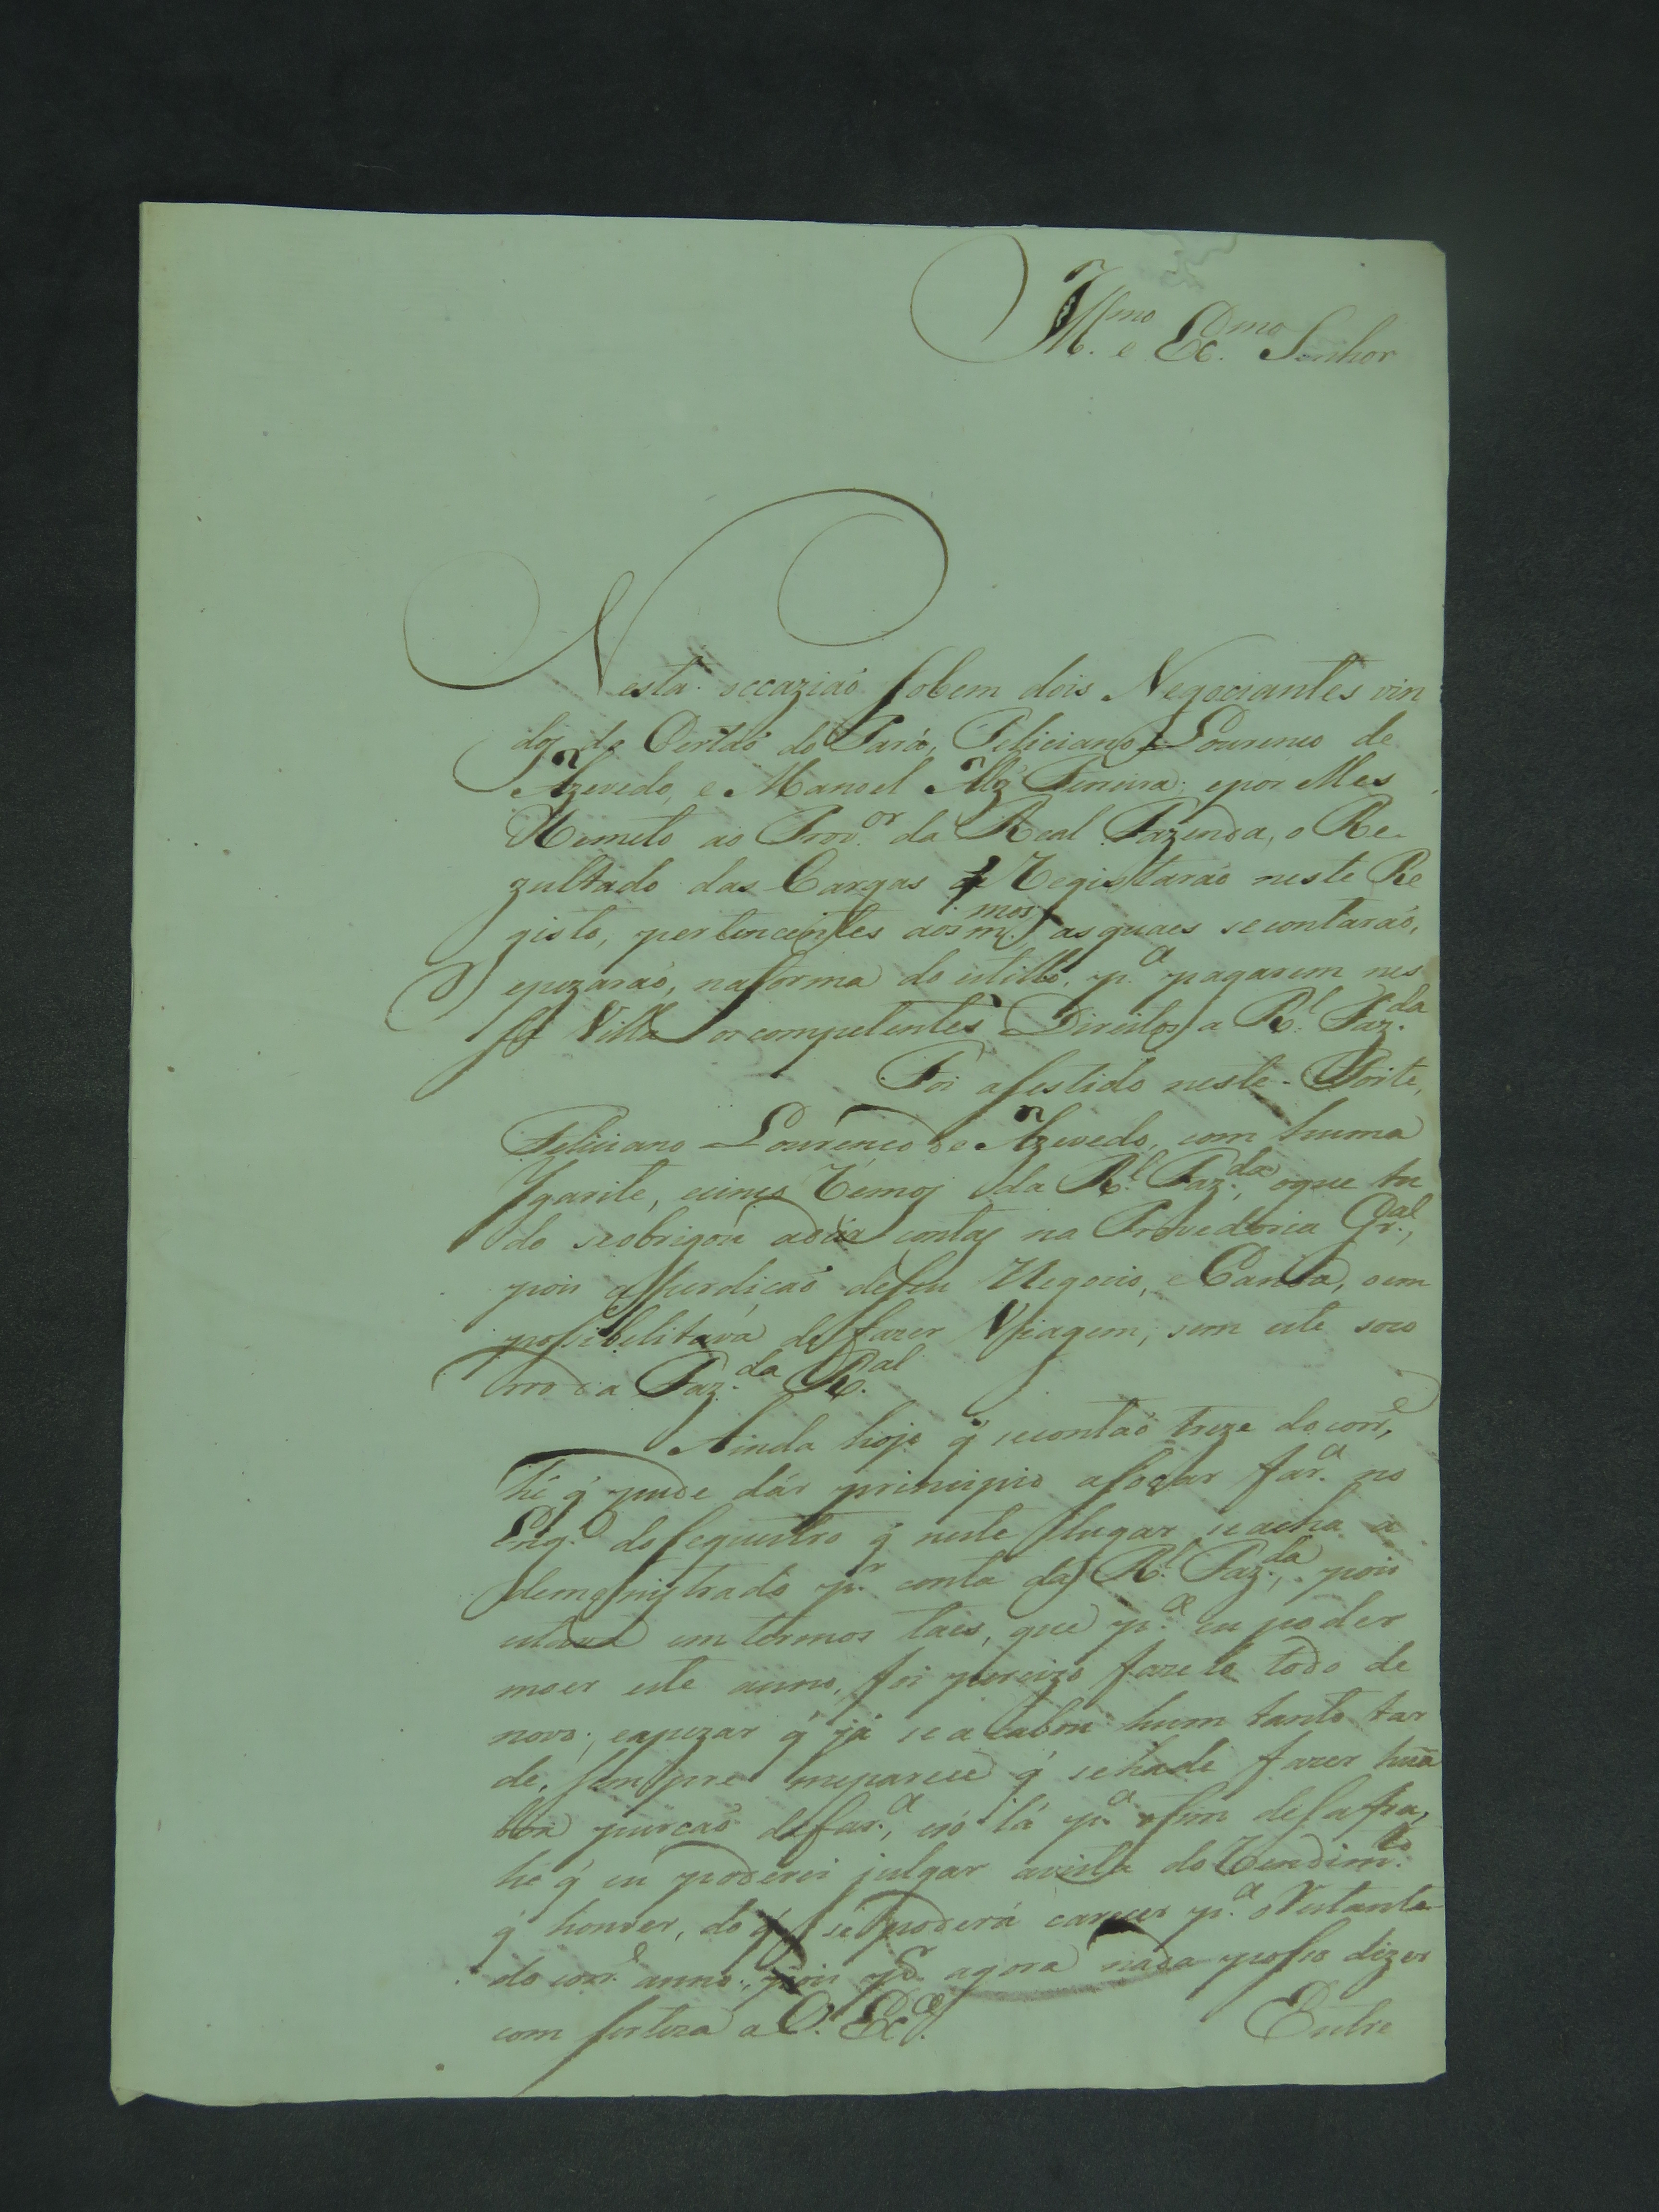 Ill.mo e Ex.mo Senhor
Nesta occaziaõ sobem dois Negociantes vin
dos da Certaõ do Pará, Feliciano Lourenco de
Azevedo, e Manoel Alz' Ferreira; epor elles
Remeto ao Prov.or da Real Fazenda, o Re-
zultado das Cargas q̃ Registaraõ neste Re
gisto, pertencentes aos m.mos, as quaes secontaraõ,
epezaraõ, naforma do estillo, p.a pagarem nes
sa Villa os competentes Direitos a R.l Faz.da
Foi asestido neste Forte,
Feliciano Lourenco de Azevedo, com huma
Ygarite, ecinco Remos da R.l Faz.da, oque tu
do seobrigou adar contas na Provedoria Gr.al,
pois aperdicaõ deseu Negocio, e Canoa, oem
posibelitava defazer Viagem, sem este soco
rro da Faz.da R.al
Ainda hoje q̃ secontaõ treze docorr.e,
hé q̃ pude dár principio afogar far.a no
Eng.o dosequestro q̃ neste lugar seacha a
demenistrado p.r conta da R.l Faz.da, pois
estava em termos taes, que p.a eu poder
moer este anno, foi percizo fazelo todo de
novo; eapezar q̃ já se acabou hum tanto tar
de, sempre meparece q̃ sehade fazer hũa
boa purcaõ defar.a, eso lá p.a ofim desafra,
hé q̃ eu poderei julgar avista do Rendim.to
q̃ houver, do q̃ se poderá carecer p.a o Restante
docorr.e anno, pois p.r agora nada posso dizer
com serteza a V. Ex.a
Entre